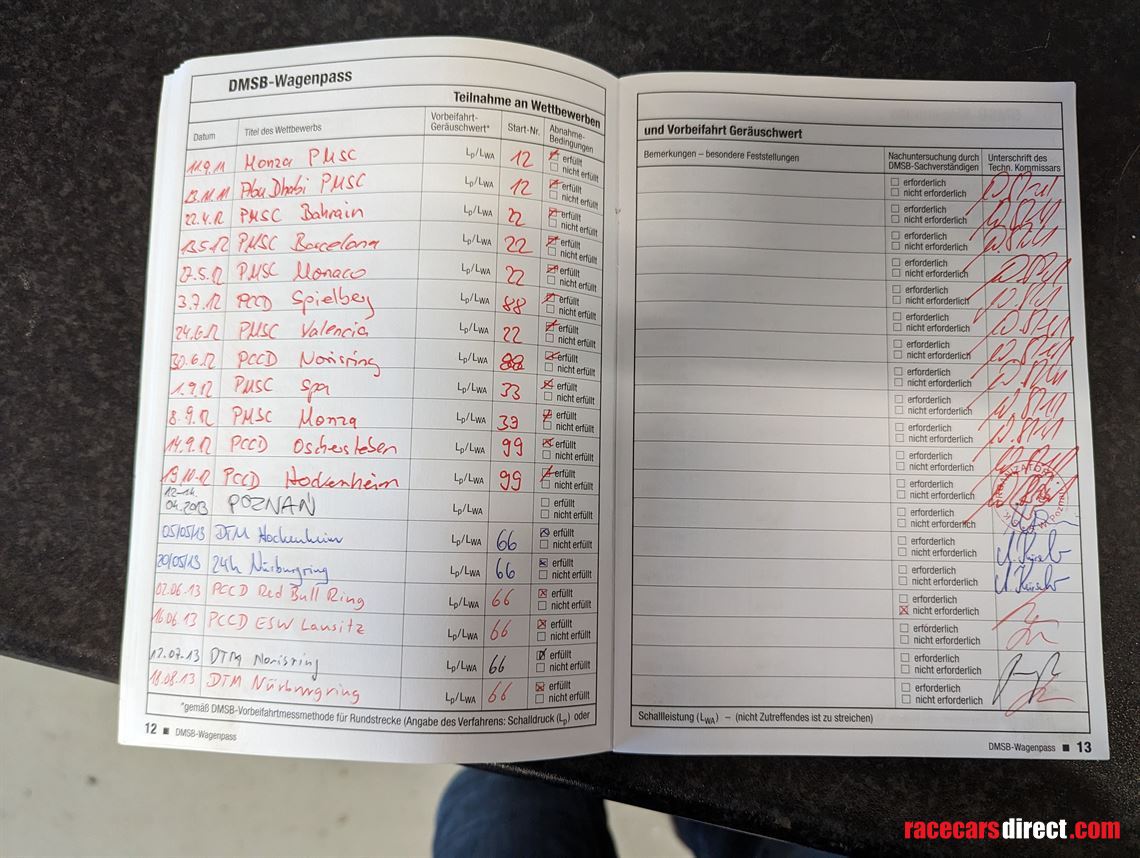 DMSB-Wagenpass
Teilnahme an Wettbewerben
Datum Titel des Wettbewerbs Vorbeifahrt-Geräuschwert* Start-Nr. Abnahme-Bedingungen
11.9.11 Monza PMSC Lp/LWA 12 erfüllt
nicht erfüllt
13.11.11 Abu Dhabi PMSC Lp/LWA 12 erfüllt
nicht erfüllt
22.4.12 PMSC Bahrain Lp/LWA 22 erfüllt
nicht erfüllt
13.5.12 PMSC Barcelona Lp/LWA 22 erfüllt
nicht erfüllt
27.5.12 PMSC Monaco Lp/LWA 22 erfüllt
nicht erfüllt
3.7.12 PCCD Spielberg Lp/LWA 88 erfüllt
nicht erfüllt
24.6.12 PMSC Valencia Lp/LWA 22 erfüllt
nicht erfüllt
30.6.12 PCCD Norisring Lp/LWA 88 erfüllt
nicht erfüllt
1.9.12 PMSC Spa Lp/LWA 33 erfüllt
nicht erfüllt
8.9.12 PMSC Monza Lp/LWA 33 erfüllt
nicht erfüllt
14.9.12 PCCD Oschersleben Lp/LWA 99 erfüllt
nicht erfüllt
19.10.12 PCCD Hockenheim Lp/LWA 99 erfüllt
nicht erfüllt
12-14.
04.2013 POZNAŃ Lp/LWA erfüllt
nicht erfüllt
05/05/13 DTM Hockenheim Lp/LWA 66 erfüllt
nicht erfüllt
20/05/13 24h Nürburgring Lp/LWA 66 erfüllt
nicht erfüllt
02.06.13 PCCD Red Bull Ring Lp/LWA 66 erfüllt
nicht erfüllt
16.06.13 PCCD ESW Lausitz Lp/LWA 66 erfüllt
nicht erfüllt
12.07.13 DTM Norisring Lp/LWA 66 erfüllt
nicht erfüllt
18.08.13 DTM Nürburgring Lp/LWA 66 erfüllt
nicht erfüllt
*gemäß DMSB-Vorbeifahrtmessmethode für Rundstrecke (Angabe des Verfahrens: Schalldruck (Lp) oder
12 ■ DMSB-Wagenpass
und Vorbeifahrt Geräuschwert
Bemerkungen – besondere Feststellungen Nachuntersuchung durch DMSB-Sachverständigen Unterschrift des Techn. Kommissars
erforderlich
nicht erforderlich
erforderlich
nicht erforderlich
erforderlich
nicht erforderlich
erforderlich
nicht erforderlich
erforderlich
nicht erforderlich
erforderlich
nicht erforderlich
erforderlich
nicht erforderlich
erforderlich
nicht erforderlich
erforderlich
nicht erforderlich
erforderlich
nicht erforderlich
erforderlich
nicht erforderlich
erforderlich
nicht erforderlich
erforderlich
nicht erforderlich
erforderlich
nicht erforderlich
erforderlich
nicht erforderlich
erforderlich
nicht erforderlich
erforderlich
nicht erforderlich
erforderlich
nicht erforderlich
erforderlich
nicht erforderlich
Schallleistung (LWA) – (nicht Zutreffendes ist zu streichen)
DMSB-Wagenpass ■ 13
racecarsdirect.com